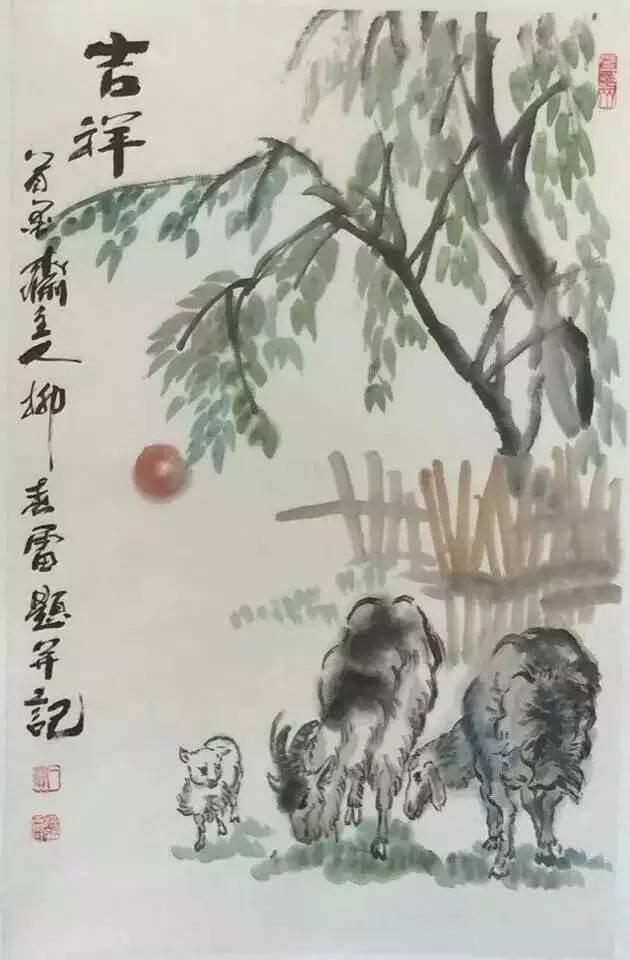 吉祥
齋主人柳春雷題并記